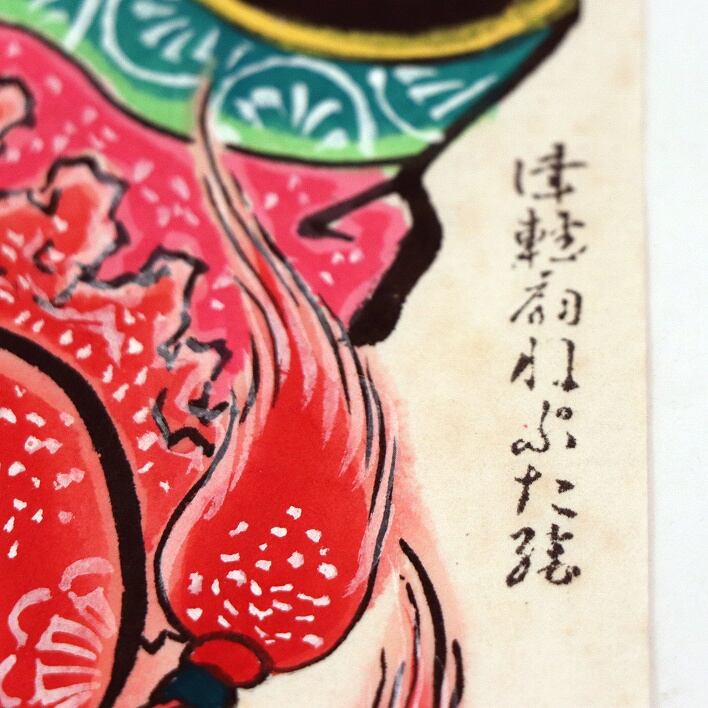 津軽扇ねぷた絵